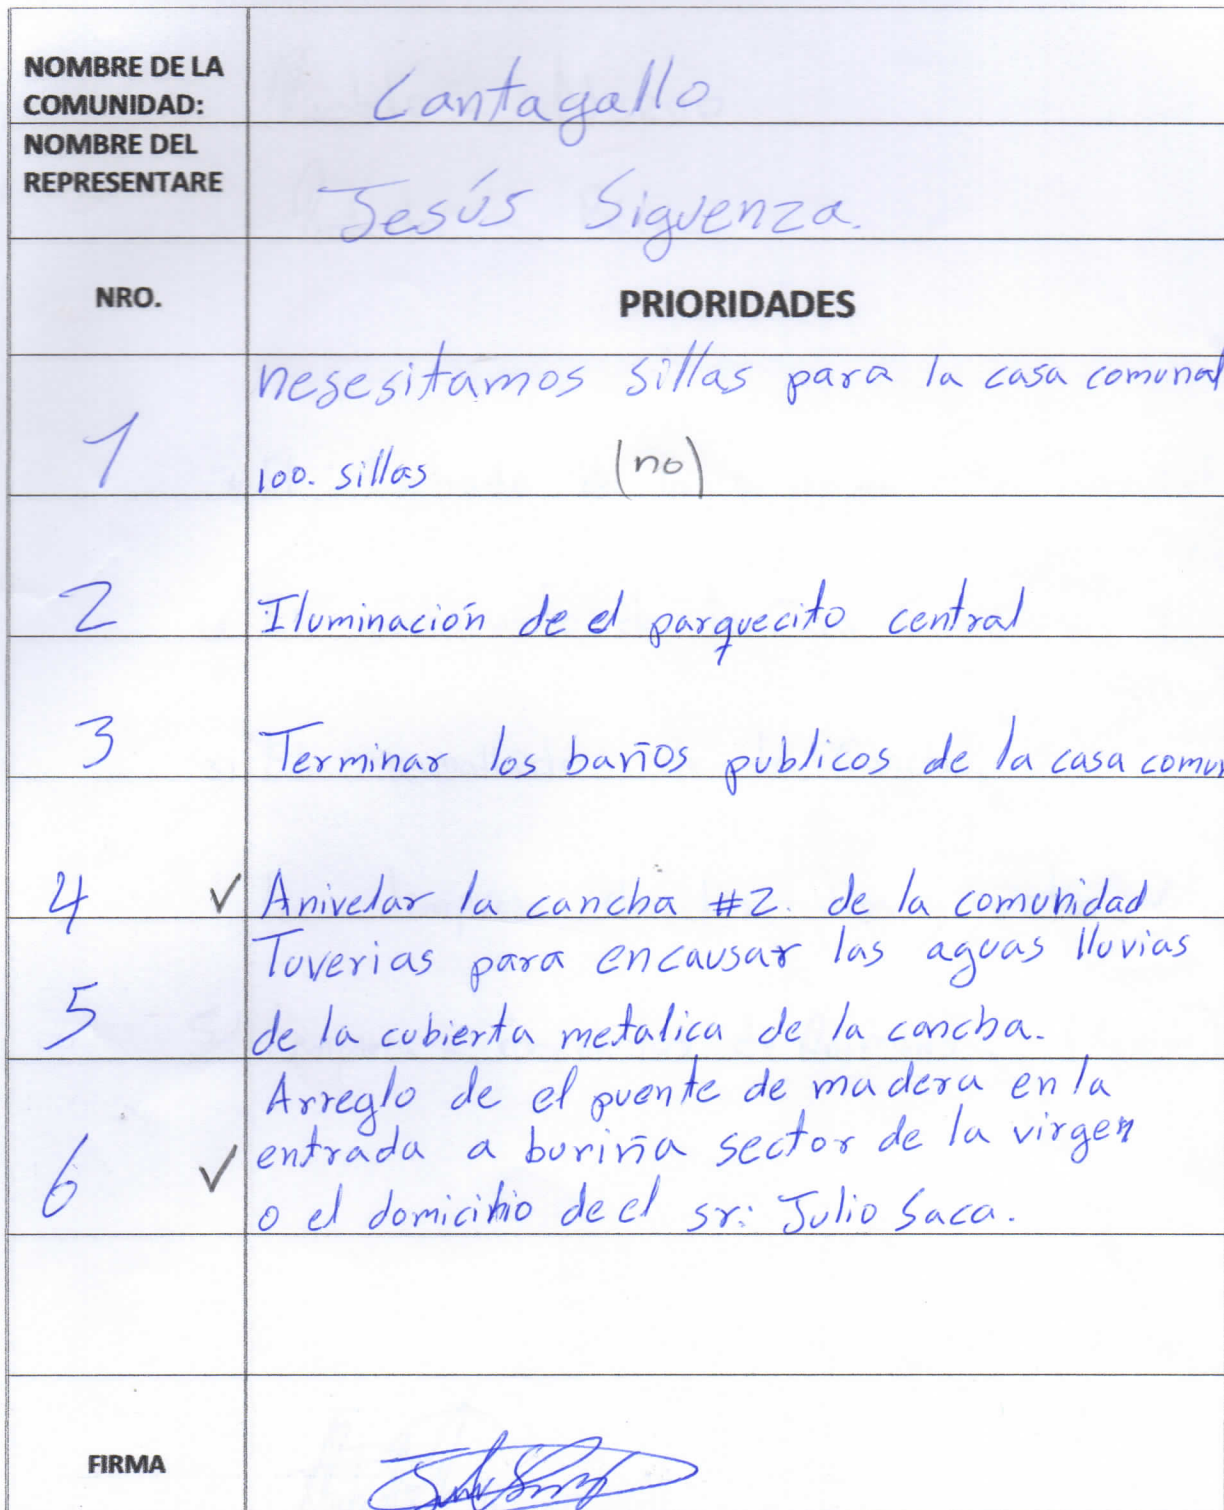 NOMBRE DE LA
COMUNIDAD:
Cantagallo
NOMBRE DEL
REPRESENTARE
Jesús Siguenza.
NRO.
PRIORIDADES
1
nesesitamos sillas para la casa comunal
100. sillas (no)
2 Iluminación de el parquecito central
3 Terminar los baños publicos de la casa comun
4 ✓ Anivelar la cancha #2. de la comunidad
5
Tuverias para encausar las aguas lluvias
de la cubierta metalica de la cancha.
6 ✓
Arreglo de el puente de madera en la
entrada a buriña sector de la virgen
o el domicilio de el sr: Julio Saca.
FIRMA